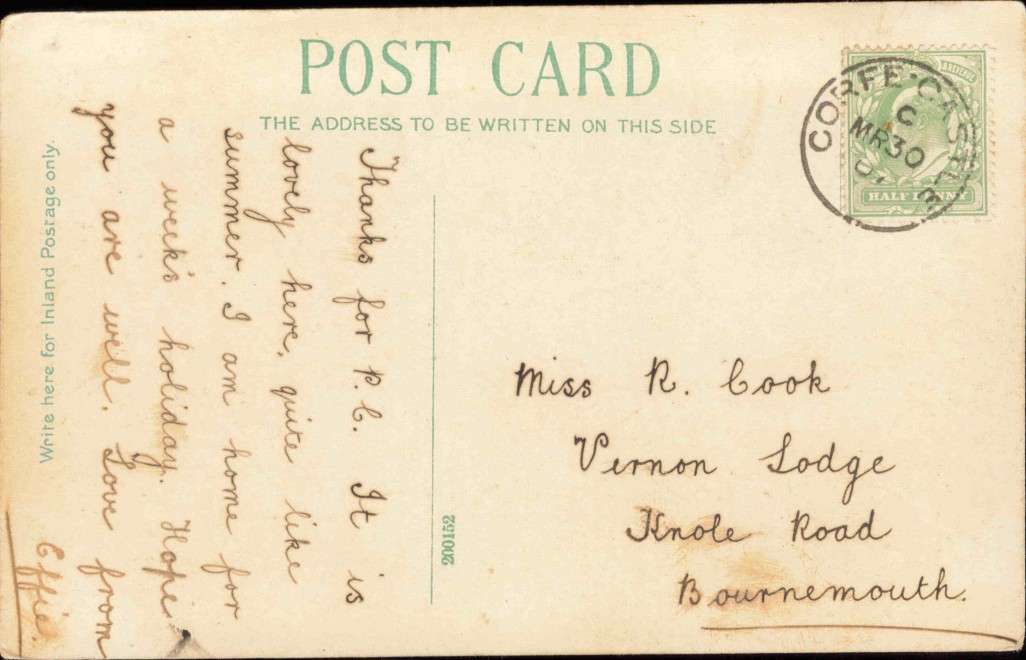 POST CARD
THE ADDRESS TO BE WRITTEN ON THIS SIDE
Write here for Inland Postage only.
Thanks for P.C. It is
lovely here, quite like
summer. I am home for
a week's holiday. Hope
you are well. Love from
Effie.
200152
CORFE·CASTLE
C
MR30
HALF PENNY
& REVENUE
Miss R. Cook
Vernon Lodge
Knole Road
Bournemouth.